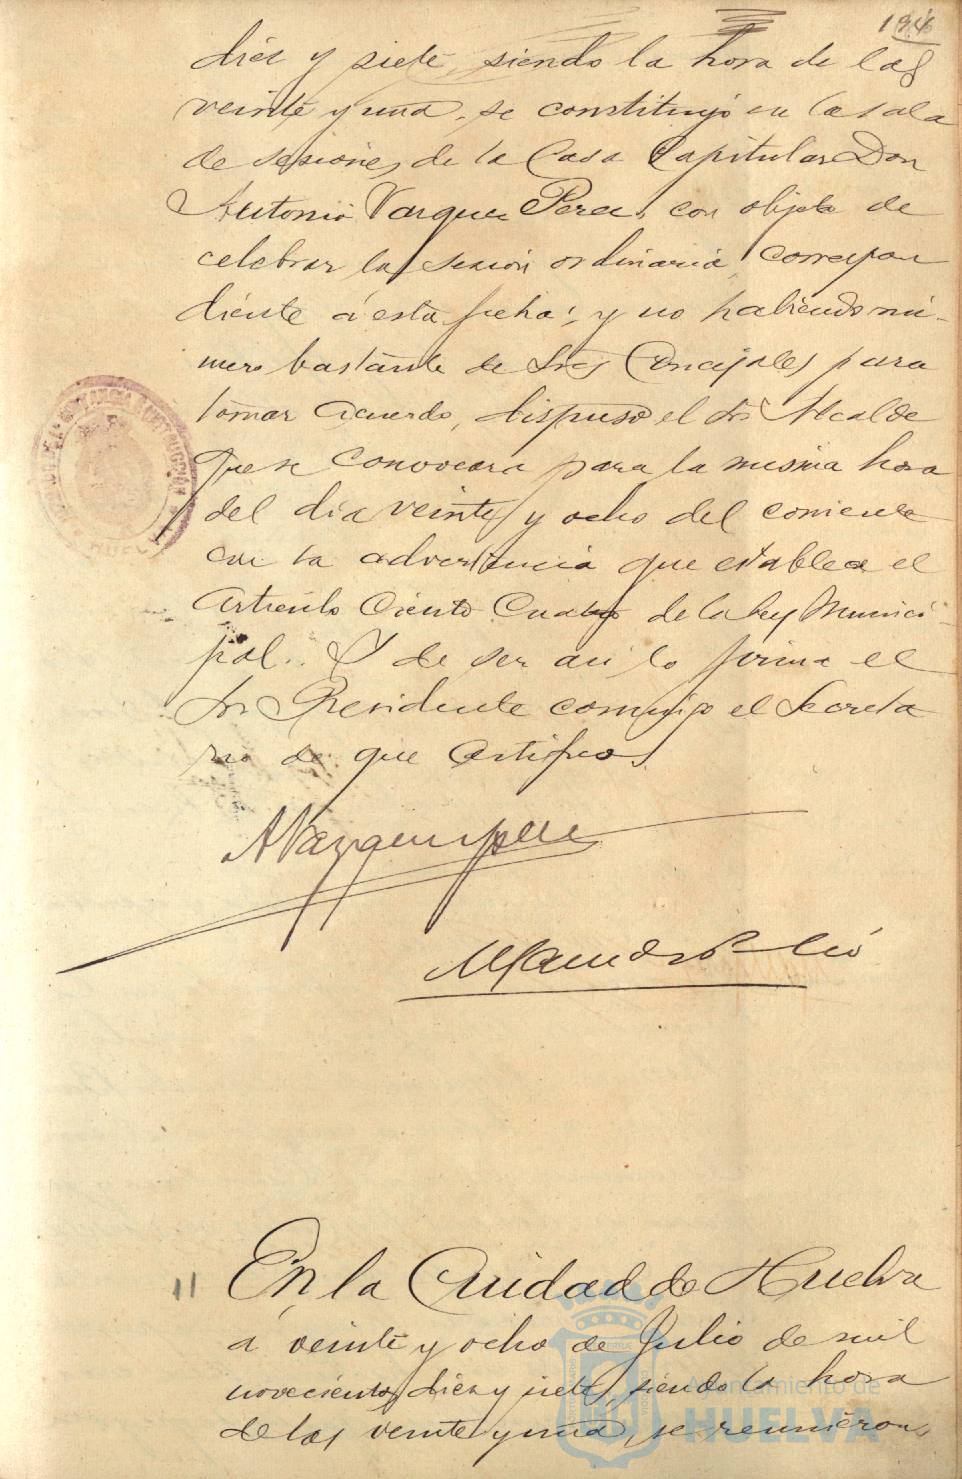 194
diez y siete, siendo la hora de las
veinte y una, se constituyó en la sala
de sesiones de la Casa Capitular Don
Antonio Vazquez Perez, con objeto de
celebrar la sesion ordinaria correspon
diente á esta fecha; y no habiendo nú-
mero bastante de Sres Concejales para
tomar acuerdo, dispuso el Sr Alcalde
que se convocara para la misma hora
del dia veinte y ocho del corriente
con la advertencia que establece el
Artículo Ciento Cuatro de la Ley Munici-
pal. Y de ser asi lo firma el
Sr Presidente conmigo el Secreta
rio de que certifico.
A Vazquez Perez
HUEL
11 En la Ciudad de Huelva
á veinte y ocho de Julio de mil
novecientos diez y siete, siendo la hora
de las veinte y una, se reunieron
Ayuntamiento de
HUELVA